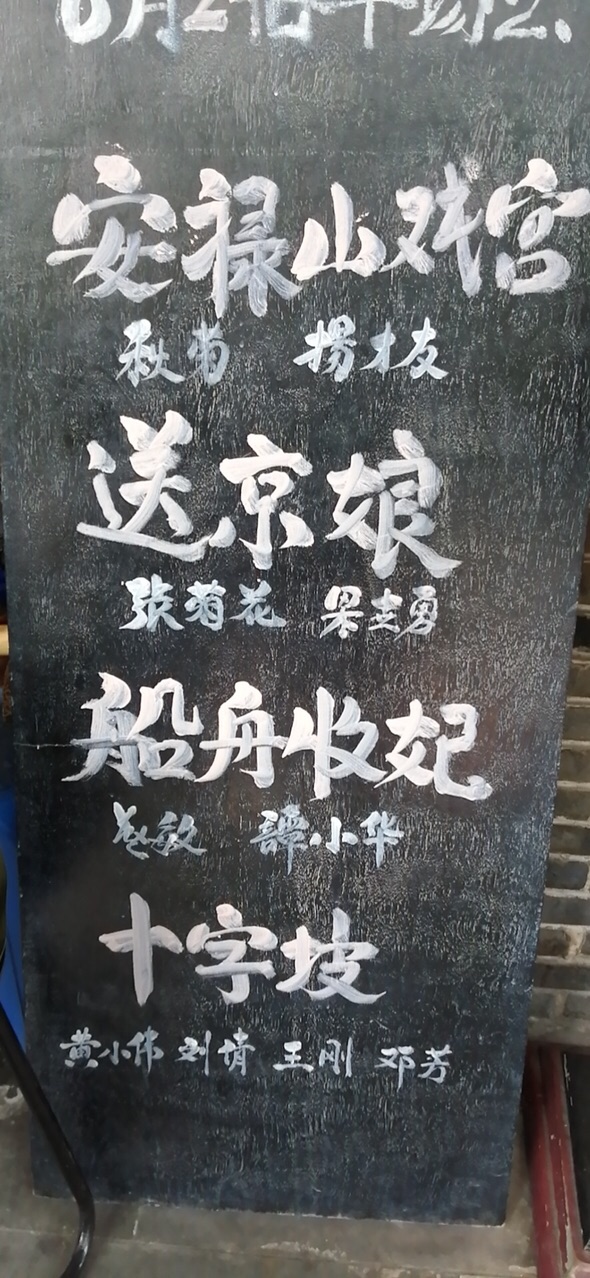 6月2
安禄山戏宫
秋菊 杨才友
送京娘
张菊花 梁志勇
船舟收妃
敏 谭小华
十字坡
黄小伟 刘倩 王刚 邓芳